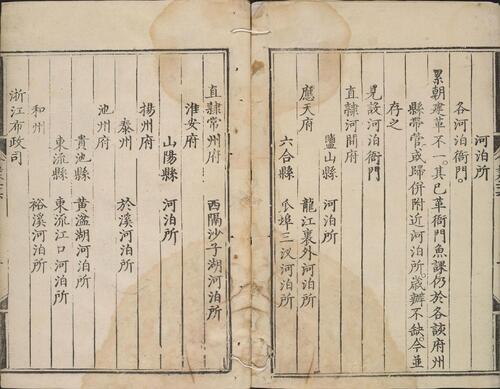 河泊所
各河泊衙門。
累朝建革不一。其已革衙門魚課仍於各該府州
縣帶管或歸併附近河泊所。歲辦不缺。今並
存之
見設河泊衙門
直隸河間府
鹽山縣 河泊所
應天府 龍江裏外河泊所
六合縣 瓜埠三汊河泊所
直隸常州府 西隔沙子湖河泊所
淮安府
山陽縣 河泊所
揚州府
泰州 於溪河泊所
池州府
貴池縣 黃湓湖河泊所
東流縣 東流江口河泊所
和州 裕溪河泊所
浙江布政司